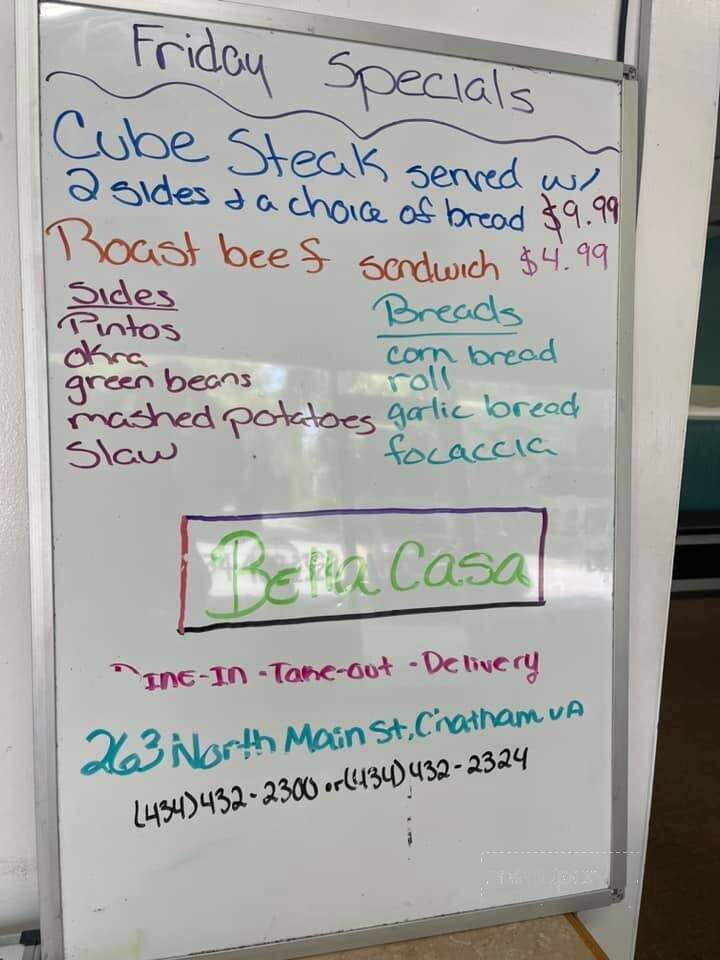 Friday Specials
Cube Steak served w/
2 sides & a choice of bread $9.99
Roast beef sandwich $4.99
Sides
Pintos
okra
green beans
mashed potatoes
Slaw
Breads
corn bread
roll
garlic bread
focaccia
Bella Casa
ine-In - Take-out - Delivery
263 North Main St, Chatham VA
(434) 432-2300 or (434) 432-2324